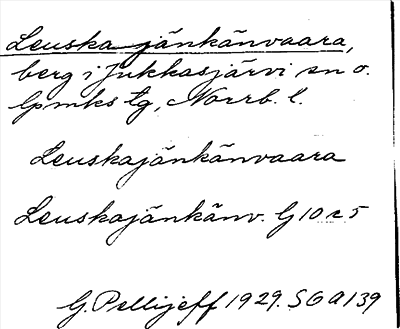 Leuska jänkänvaara,
berg i Jukkasjärvi sn o.
lpmks tg, Norrb. l.
Leuskajänkänvaara
Leuskajänkänv. G 10 r 5
G. Pellijeff 1929. SGA 139